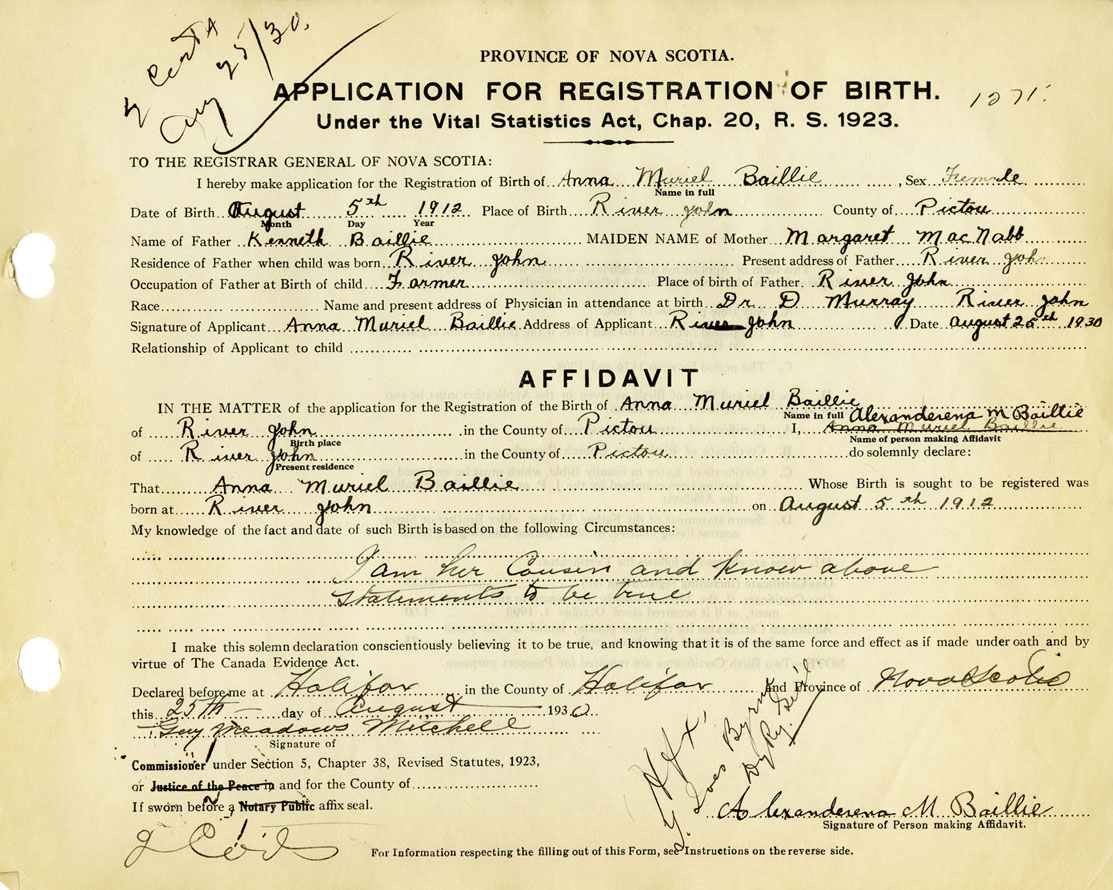 2 Certs
Aug 25/30.
PROVINCE OF NOVA SCOTIA.
APPLICATION FOR REGISTRATION OF BIRTH.
1271.
Under the Vital Statistics Act, Chap. 20, R. S. 1923.
TO THE REGISTRAR GENERAL OF NOVA SCOTIA:
I hereby make application for the Registration of Birth of Anna Muriel Baillie, Sex Female
Name in full
Date of Birth August 5th 1912 Place of Birth River John County of Pictou
Month Day Year
Name of Father Kenneth Baillie MAIDEN NAME of Mother Margaret MacNabb
Residence of Father when child was born River John Present address of Father River John
Occupation of Father at Birth of child Farmer Place of birth of Father River John
Race Name and present address of Physician in attendance at birth Dr D Murray River John
Signature of Applicant Anna Muriel Baillie Address of Applicant River John Date August 25th 1930
Relationship of Applicant to child
AFFIDAVIT
IN THE MATTER of the application for the Registration of the Birth of Anna Muriel Baillie
Name in full Alexanderena M Baillie
of River John in the County of Pictou I, Anna Muriel Baillie
Birth place Name of person making Affidavit
of River John in the County of Pictou do solemnly declare:
Present residence
That Anna Muriel Baillie Whose Birth is sought to be registered was
born at River John on August 5th 1912
My knowledge of the fact and date of such Birth is based on the following Circumstances:
I am her Cousin and know above
statements to be true
I make this solemn declaration conscientiously believing it to be true, and knowing that it is of the same force and effect as if made under oath and by
virtue of The Canada Evidence Act.
Declared before me at Halifax in the County of Halifax and Province of Nova Scotia
this 25th day of August 1930
Guy Meadows Mitchell
Signature of
Commissioner under Section 5, Chapter 38, Revised Statutes, 1923,
or Justice of the Peace in and for the County of
If sworn before a Notary Public affix seal.
Hfx
Byrne
Alexanderena M Baillie
Signature of Person making Affidavit.
For Information respecting the filling out of this Form, see Instructions on the reverse side.